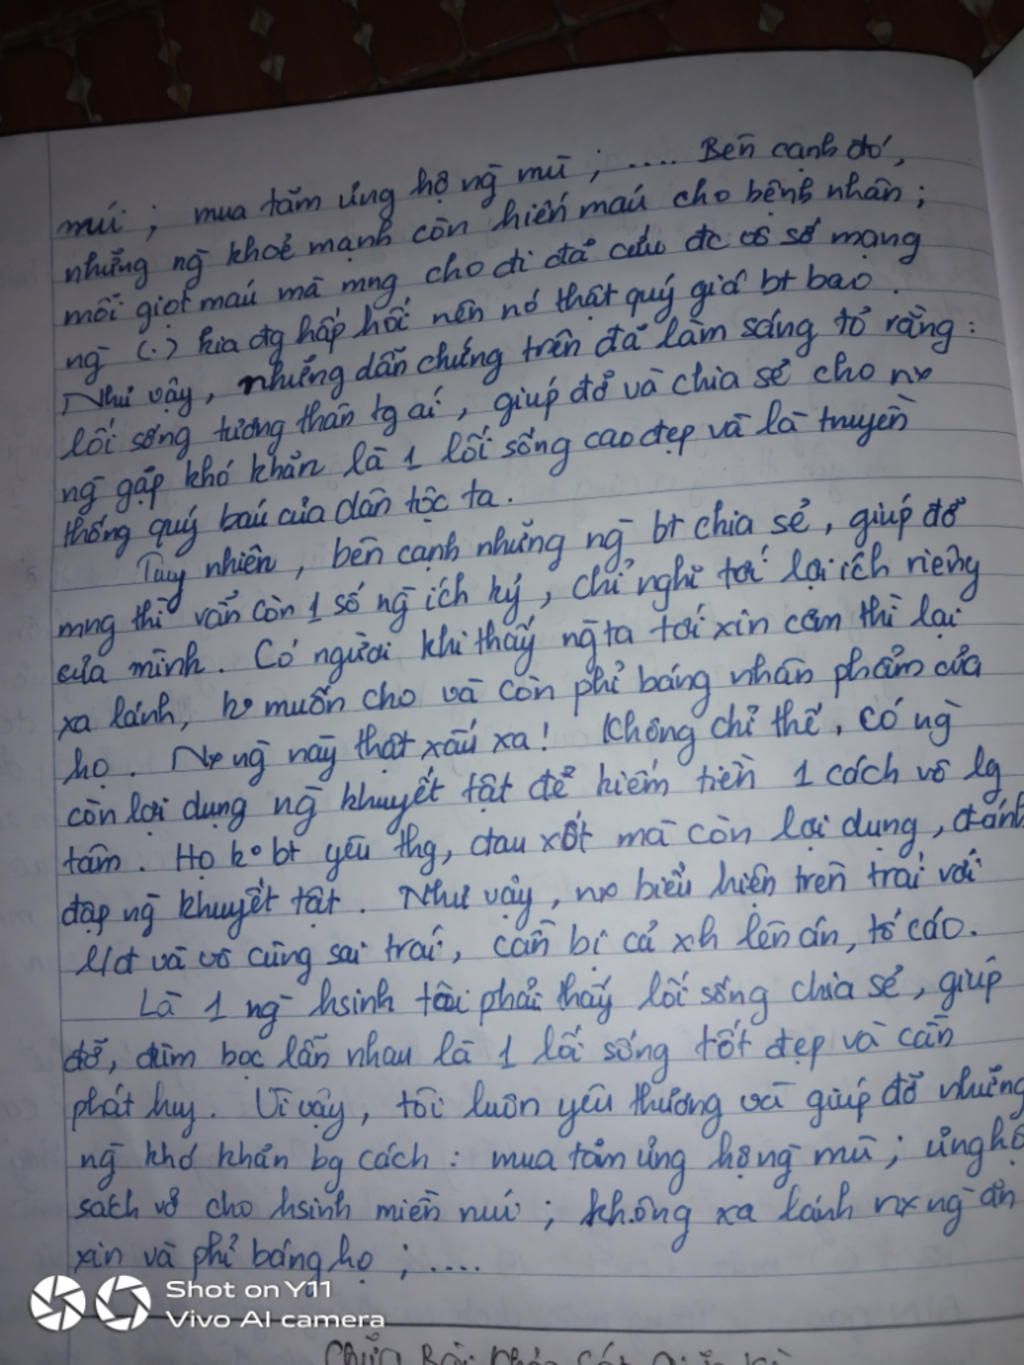 núi ; mua tăm ủng hộ ng̀ mù ; .... Bên cạnh đó,
những ng̀ khoẻ mạnh còn hiến máu cho bệnh nhân ;
mỗi giọt máu mà mng cho đi đã cứu đc vô số mạng
ng̀ (.) kia đg hấp hối nên nó thật quý giá bt bao.
Như vậy, những dẫn chứng trên đã làm sáng tỏ rằng:
lối sống tương thân tg ái, giúp đỡ và chia sẻ cho nx
ng̀ gặp khó khăn là 1 lối sống cao đẹp và là truyền
thống quý báu của dân tộc ta.
Tuy nhiên, bên cạnh những ng̀ bt chia sẻ, giúp đỡ
mng thì vẫn còn 1 số ng̀ ích kỷ, chỉ nghĩ tới lợi ích riêng
của mình. Có người khi thấy ng̀ ta tới xin cơm thì lại
xa lánh, ko muốn cho và còn phỉ báng nhân phẩm của
họ. Nx ng̀ này thật xấu xa! Không chỉ thế, có ng̀
còn lợi dụng ng̀ khuyết tật để kiếm tiền 1 cách vô lg
tâm. Họ ko bt yêu thg, đau xót mà còn lợi dụng, đánh
đập ng̀ khuyết tật. Như vậy, nx biểu hiện trên trái với
l/đ và vô cùng sai trái, cần bị cả xh lên án, tố cáo.
Là 1 ng̀ hsinh tôi phải thấy lối sống chia sẻ, giúp
đỡ, đùm bọc lẫn nhau là 1 lối sống tốt đẹp và cần
phát huy. Vì vậy, tôi luôn yêu thương và giúp đỡ những
ng̀ khó khăn bg cách : mua tăm ủng hộ ng̀ mù ; ủng hộ
sách vở cho hsinh miền núi ; không xa lánh nx ng̀ ăn
xin và phỉ báng họ ; ....
Shot on Y11
Vivo AI camera